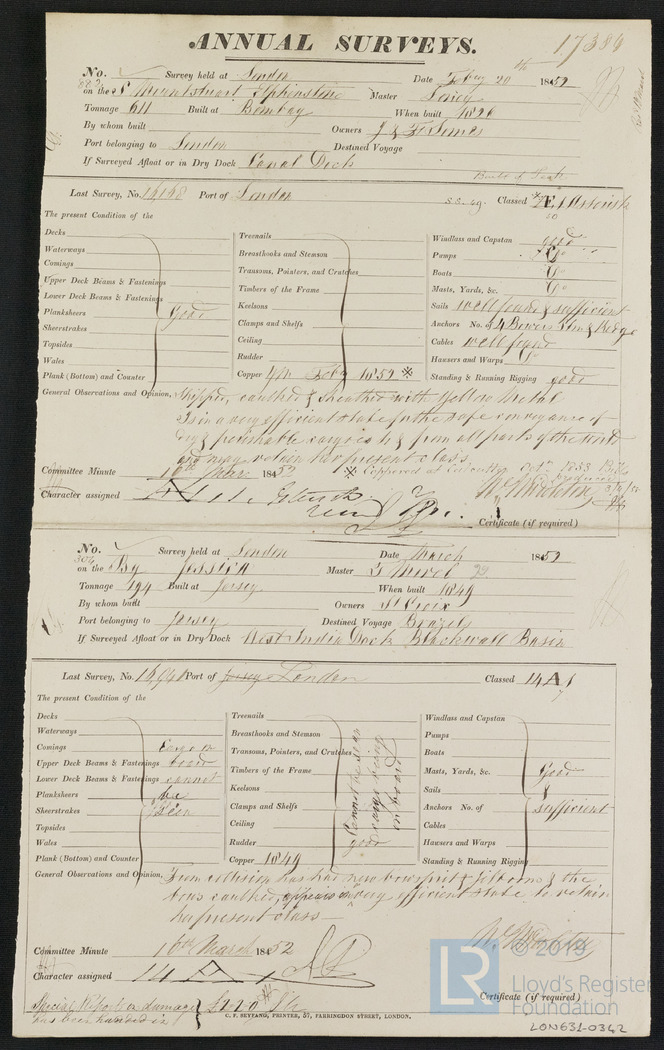 ANNUAL SURVEYS.
17386
No. 882 Survey held at London Date Feby 20th 1852
on the S Mountstuart Elphinstone Master
Tonnage 611 Built at Bombay When built 1826
By whom built Owners J & F Somes
Port belonging to London Destined Voyage
If Surveyed Afloat or in Dry Dock Canal Dock
Built of Teak
Last Survey, No. Port of London Classed Æ 1
The present Condition of the
Decks
Waterways
Comings
Upper Deck Beams & Fastenings
Lower Deck Beams & Fastenings
Planksheers good
Sheerstrakes
Topsides
Wales
Plank (Bottom) and Counter
Treenails
Breasthooks and Stemson
Transoms, Pointers, and Crutches
Timbers of the Frame
Keelsons
Clamps and Shelfs
Ceiling
Rudder
Copper Feby 1852 ※
Windlass and Capstan good
Pumps Do
Boats Do
Masts, Yards, &c. Do
Sails well found & sufficient
Anchors No. of 4 Bowers & Kedge
Cables well found
Hawsers and Warps Do
Standing & Running Rigging good
General Observations and Opinion, Stripped, caulked & sheathed with Yellow Metal
Is in a very efficient state for the safe conveyance of
dry & perishable cargoes to & from all parts of the World
and may retain her present class
Committee Minute 10th Mar. 1852
※ Coppered at Calcutta Octr
Character assigned
Certificate (if required)
No. 304 Survey held at London Date March 1852
on the Bg Jessica Master
Tonnage 194 Built at Jersey When built 1849
By whom built Owners St Croix
Port belonging to Jersey Destined Voyage Brazils
If Surveyed Afloat or in Dry Dock West India Dock Blackwall Basin
Last Survey, No. Port of Jersey London Classed 14 A 1
The present Condition of the
Decks
Waterways
Comings Cargo on
Upper Deck Beams & Fastenings board
Lower Deck Beams & Fastenings cannot
Planksheers be
Sheerstrakes Seen
Topsides
Wales
Plank (Bottom) and Counter
Treenails
Breasthooks and Stemson
Transoms, Pointers, and Crutches
Timbers of the Frame
Keelsons
Clamps and Shelfs
Ceiling
Cannot be seen
cargo being
on board
Rudder good
Copper 1849
Windlass and Capstan
Pumps
Boats
Masts, Yards, &c. Good
Sails &
Anchors No. of sufficient
Cables
Hawsers and Warps
Standing & Running Rigging
General Observations and Opinion, From collision has had new bowsprit & jibboom & the
bows caulked, appears in very efficient state to retain
her present class
Committee Minute 16th March 1852
Character assigned 14 A 1
Certificate (if required)
Special Report a damage
has been handed in
C. F. SEYFANG, PRINTER, 57, FARRINGDON STREET, LONDON.
LR © 2019
Lloyd's Register
Foundation
LON631-0342